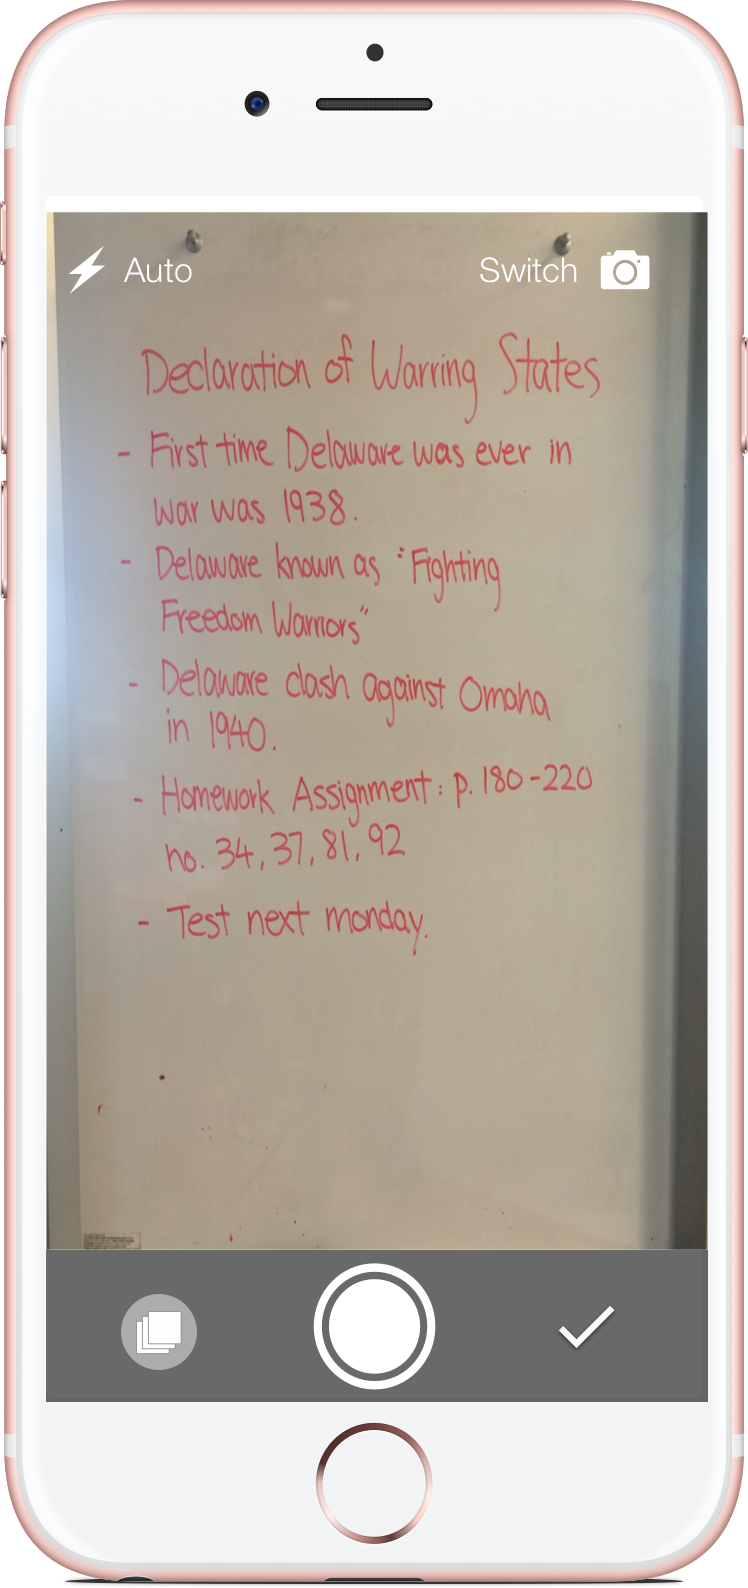 Auto Switch
Declaration of Warring States
- First time Delaware was ever in
war was 1938.
- Delaware known as "Fighting
Freedom Warriors"
- Delaware clash against Omaha
in 1940.
- Homework Assignment: p. 180-220
no. 34, 37, 81, 92
- Test next monday.